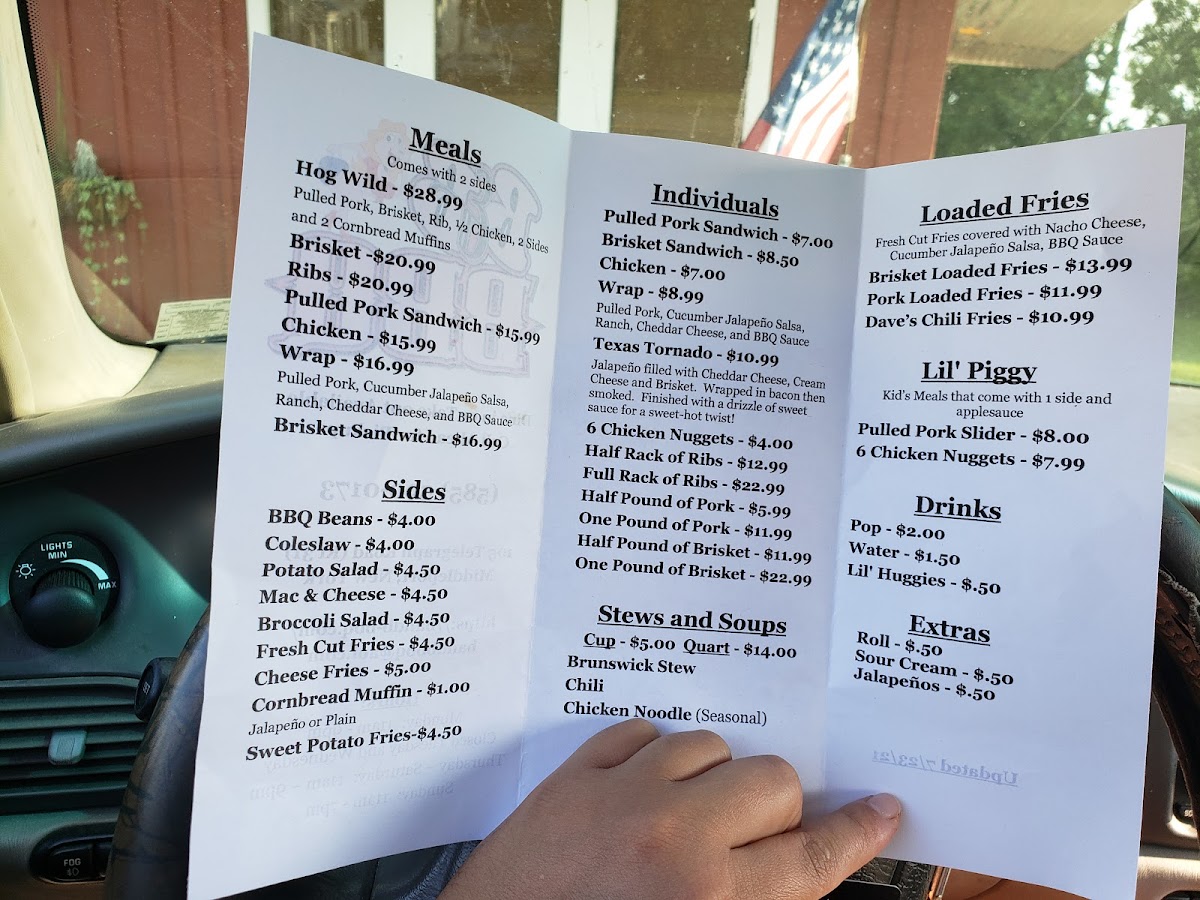 Meals
Comes with 2 sides
Hog Wild - $28.99
Pulled Pork, Brisket, Rib, ½ Chicken, 2 Sides
and 2 Cornbread Muffins
Brisket -$20.99
Ribs - $20.99
Pulled Pork Sandwich - $15.99
Chicken - $15.99
Wrap - $16.99
Pulled Pork, Cucumber Jalapeño Salsa,
Ranch, Cheddar Cheese, and BBQ Sauce
Brisket Sandwich - $16.99
Sides
BBQ Beans - $4.00
Coleslaw - $4.00
Potato Salad - $4.50
Mac & Cheese - $4.50
Broccoli Salad - $4.50
Fresh Cut Fries - $4.50
Cheese Fries - $5.00
Cornbread Muffin - $1.00
Jalapeño or Plain
Sweet Potato Fries-$4.50
Individuals
Pulled Pork Sandwich - $7.00
Brisket Sandwich - $8.50
Chicken - $7.00
Wrap - $8.99
Pulled Pork, Cucumber Jalapeño Salsa,
Ranch, Cheddar Cheese, and BBQ Sauce
Texas Tornado - $10.99
Jalapeño filled with Cheddar Cheese, Cream
Cheese and Brisket. Wrapped in bacon then
smoked. Finished with a drizzle of sweet
sauce for a sweet-hot twist!
6 Chicken Nuggets - $4.00
Half Rack of Ribs - $12.99
Full Rack of Ribs - $22.99
Half Pound of Pork - $5.99
One Pound of Pork - $11.99
Half Pound of Brisket - $11.99
One Pound of Brisket - $22.99
Stews and Soups
Cup - $5.00 Quart - $14.00
Brunswick Stew
Chili
Chicken Noodle (Seasonal)
Loaded Fries
Fresh Cut Fries covered with Nacho Cheese,
Cucumber Jalapeño Salsa, BBQ Sauce
Brisket Loaded Fries - $13.99
Pork Loaded Fries - $11.99
Dave's Chili Fries - $10.99
Lil' Piggy
Kid's Meals that come with 1 side and
applesauce
Pulled Pork Slider - $8.00
6 Chicken Nuggets - $7.99
Drinks
Pop - $2.00
Water - $1.50
Lil' Huggies - $.50
Extras
Roll - $.50
Sour Cream - $.50
Jalapeños - $.50
Updated 7/23/21
LIGHTS
MIN
MAX
FOG